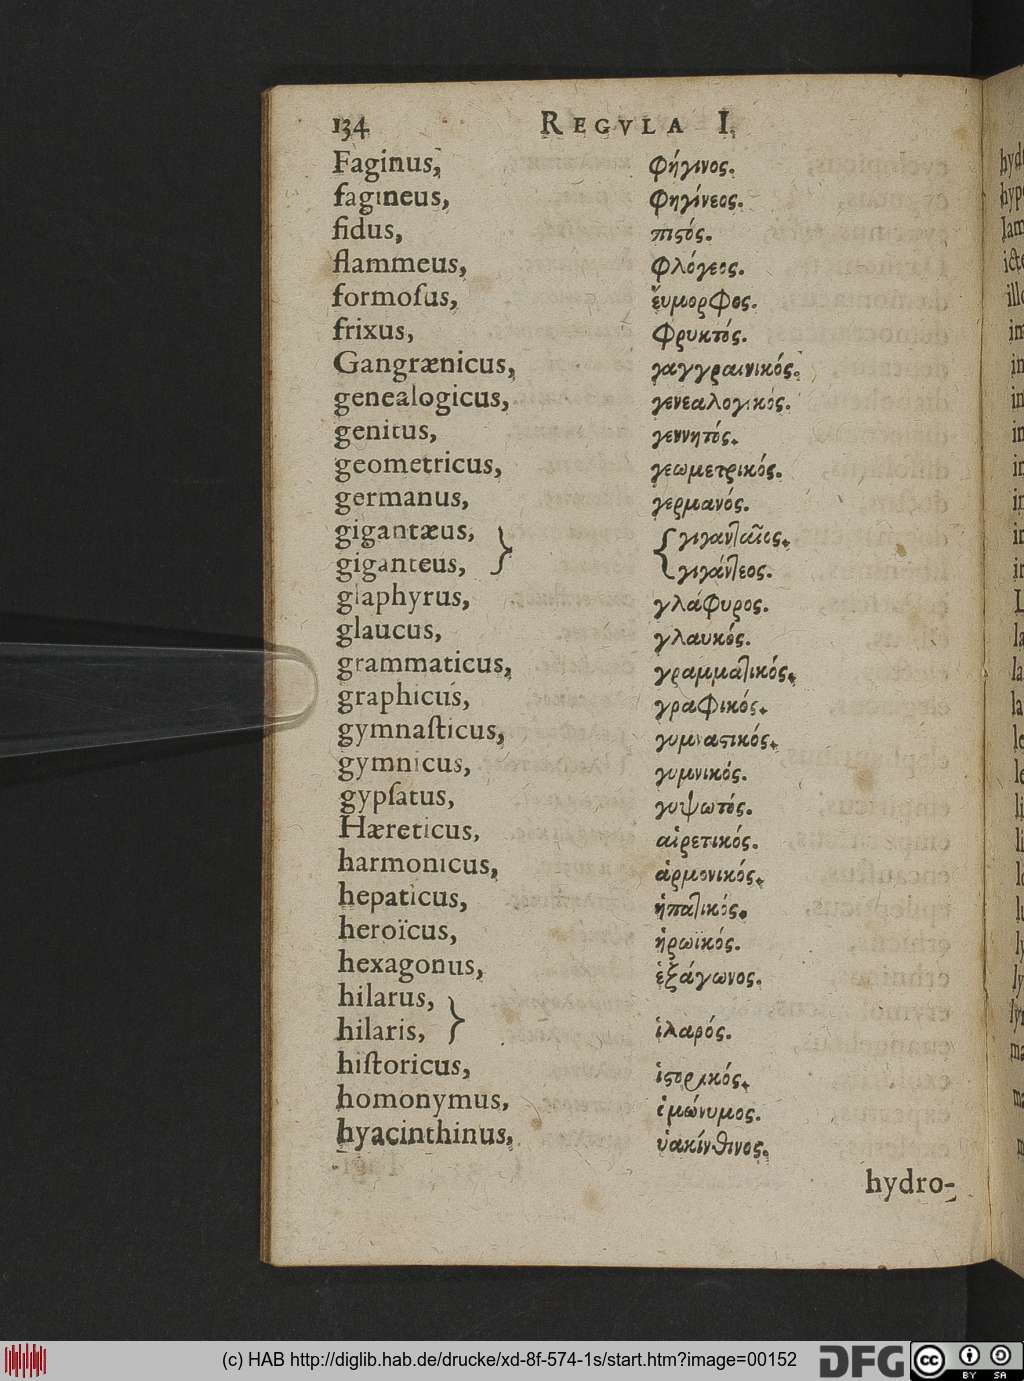 134 REGVLA I.
Faginus, φήγινος.
fagineus, φηγίνεος.
fidus, πιϛός.
flammeus, φλόγεος.
formoſus, ἔυμορφος.
frixus, φρυκτός.
Gangrænicus, γαγγραινικός.
genealogicus, γενεαλογικός.
genitus, γεννητός.
geometricus, γεωμετρικός.
germanus, γερμανός.
gigantæus, } { γιγανταῖος.
giganteus, γιγάντεος.
glaphyrus, γλάφυρος.
glaucus, γλαυκός.
grammaticus, γραμματικός.
graphicus, γραφικός.
gymnaſticus, γυμναϛικός.
gymnicus, γυμνικός.
gypſatus, γυψωτός.
Hæreticus, αἱρετικός.
harmonicus, ἁρμονικός.
hepaticus, ἡπατικός.
heroïcus, ἡρωϊκός.
hexagonus, ἑξάγωνος.
hilarus, }
hilaris, ἱλαρός.
hiſtoricus, ἱϛορικός.
homonymus, ὁμώνυμος.
hyacinthinus, ὑακίνθινος.
hydro-
(c) HAB http://diglib.hab.de/drucke/xd-8f-574-1s/start.htm?image=00152 DFG cc BY SA